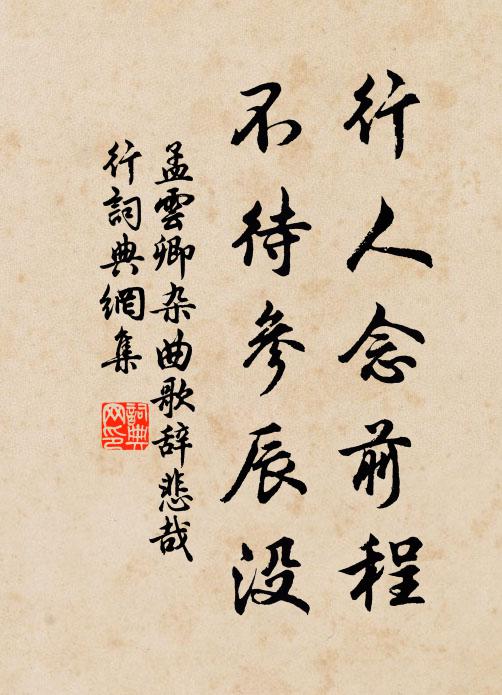 行人念前程
不待參辰没
孟雲卿杂曲歌辞悲哉
行詞典網集
詞典
网印